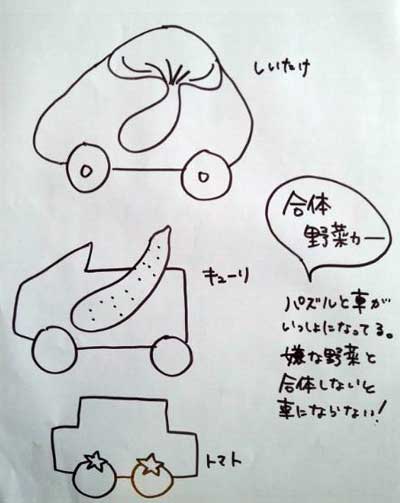 しいたけ
合体
野菜カー
キューリ
パズルと車が
いっしょになってる。
嫌な野菜と
合体しないと
車にならない!
トマト